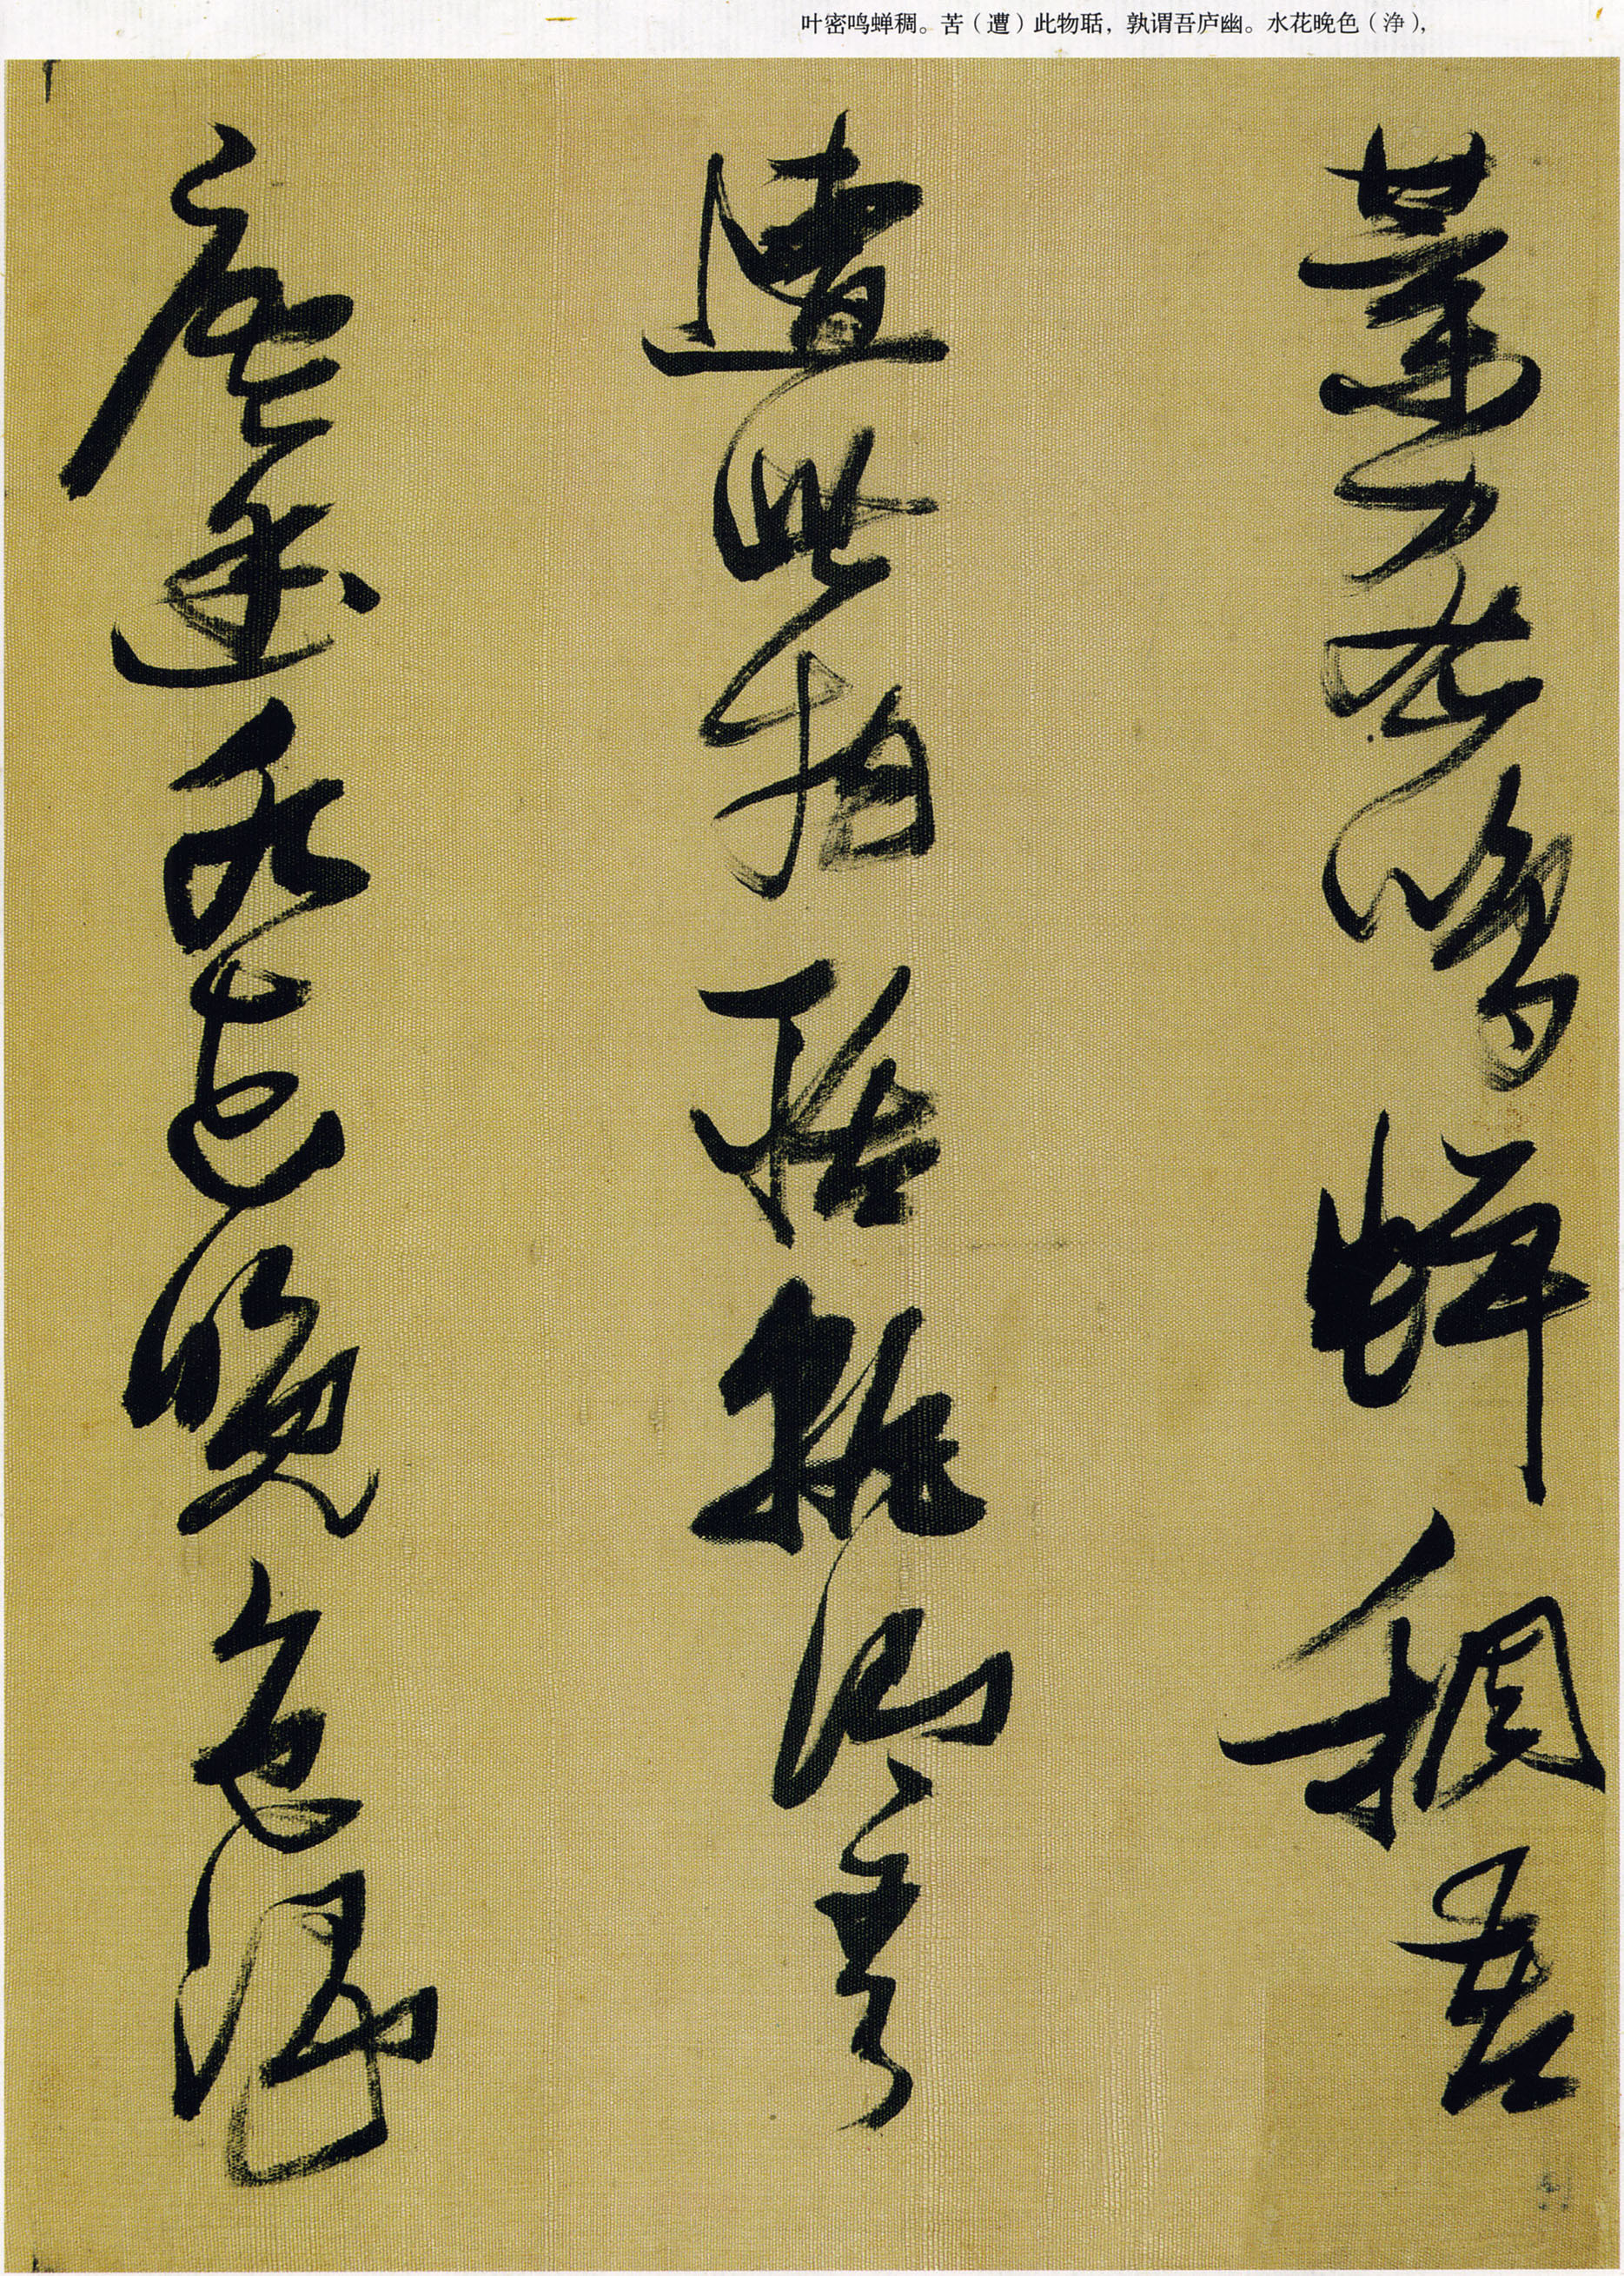 叶密鸣蝉稠。苦（遭）此物聒，孰谓吾庐幽。水花晚色（浄），
葉密鳴蟬稠苦
遭此物聒孰謂吾
廬幽水花晚色淨